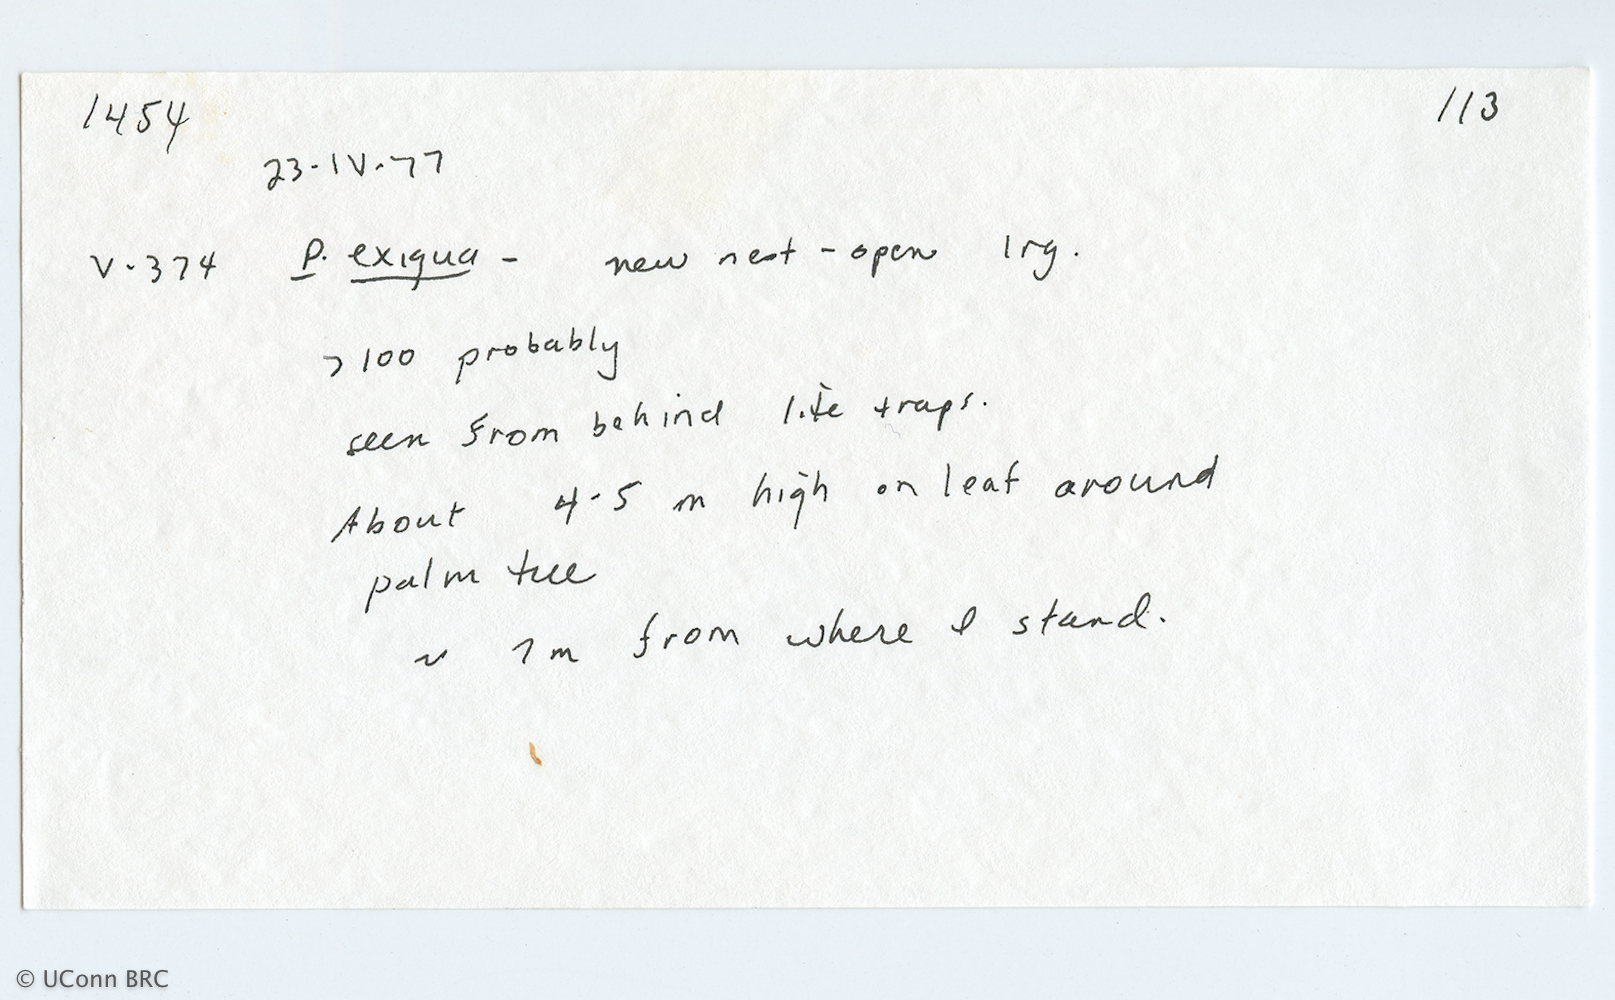 1454 113
23-IV-77
V-374 P. exiqua - new nest - open lrg.
>100 probably
seen from behind lite traps.
About 4-5 m high on leaf around
palm tree
~ 7m from where I stand.
© UConn BRC